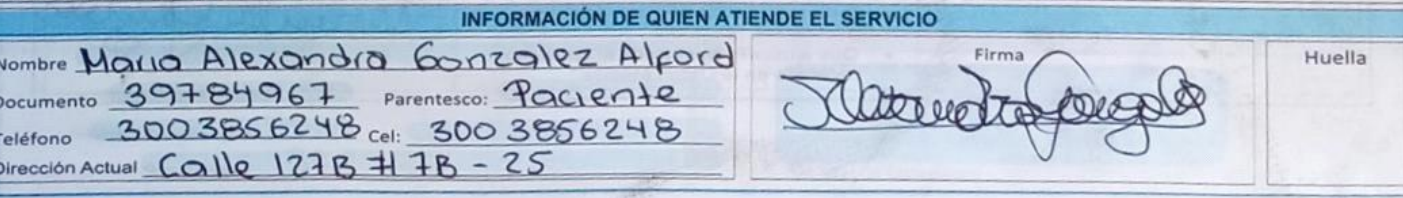 INFORMACIÓN DE QUIEN ATIENDE EL SERVICIO
Nombre Maria Alexandra Gonzalez Alford
Documento 39784967 Parentesco: Paciente
Teléfono 3003856248 cel: 300 3856248
Dirección Actual Calle 127B # 7B - 25
Firma
Huella